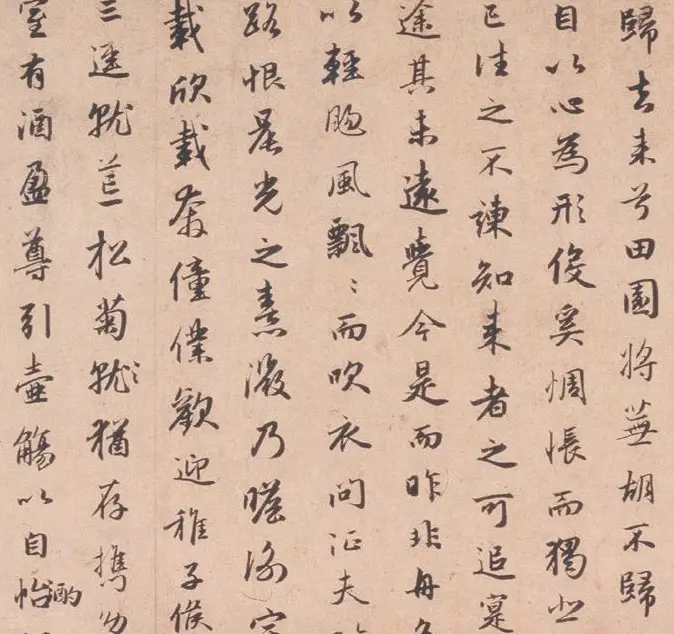 歸去来兮田園將蕪胡不歸
自以心為形役奚惆悵而獨
已往之不諫知来者之可追寔
途其未遠覺今是而昨非舟
以輕颺風飄〻而吹衣問征夫
路恨晨光之熹微乃瞻衡宇
載欣載奔僮僕歡迎稚子候
三逕就荒松菊就〻猶存攜幼
室有酒盈尊引壺觴以自怡酌